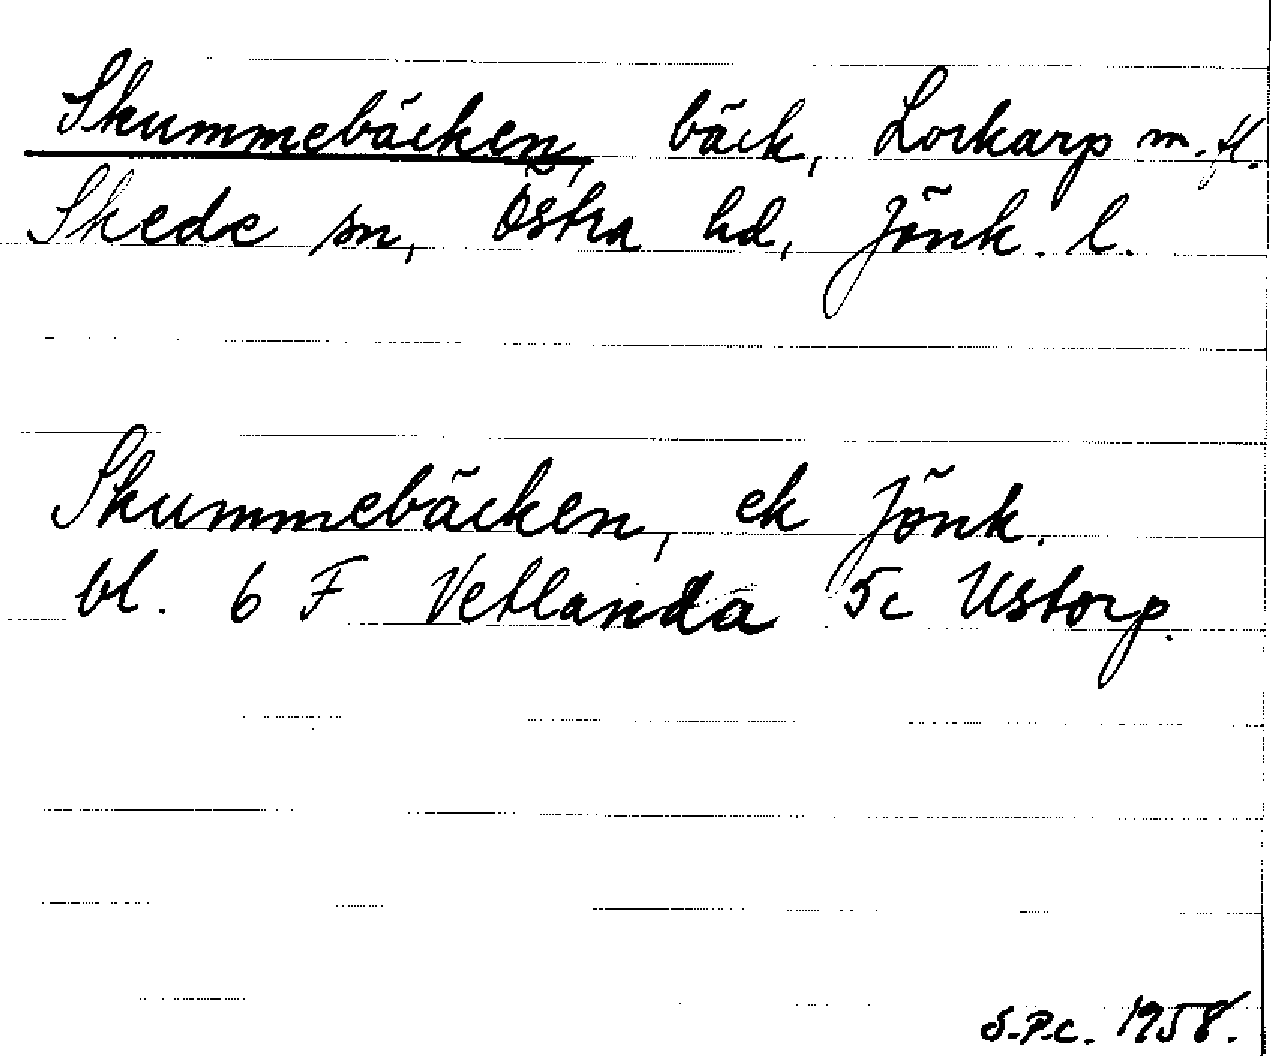 Skummebäcken, bäck, Lockarp m. fl.
Skede sn, Östra hd, Jönk. l.
Skummebäcken, ek Jönk.
bl. 6 F Vetlanda 5c Ustorp.
S.P.C. 1958.